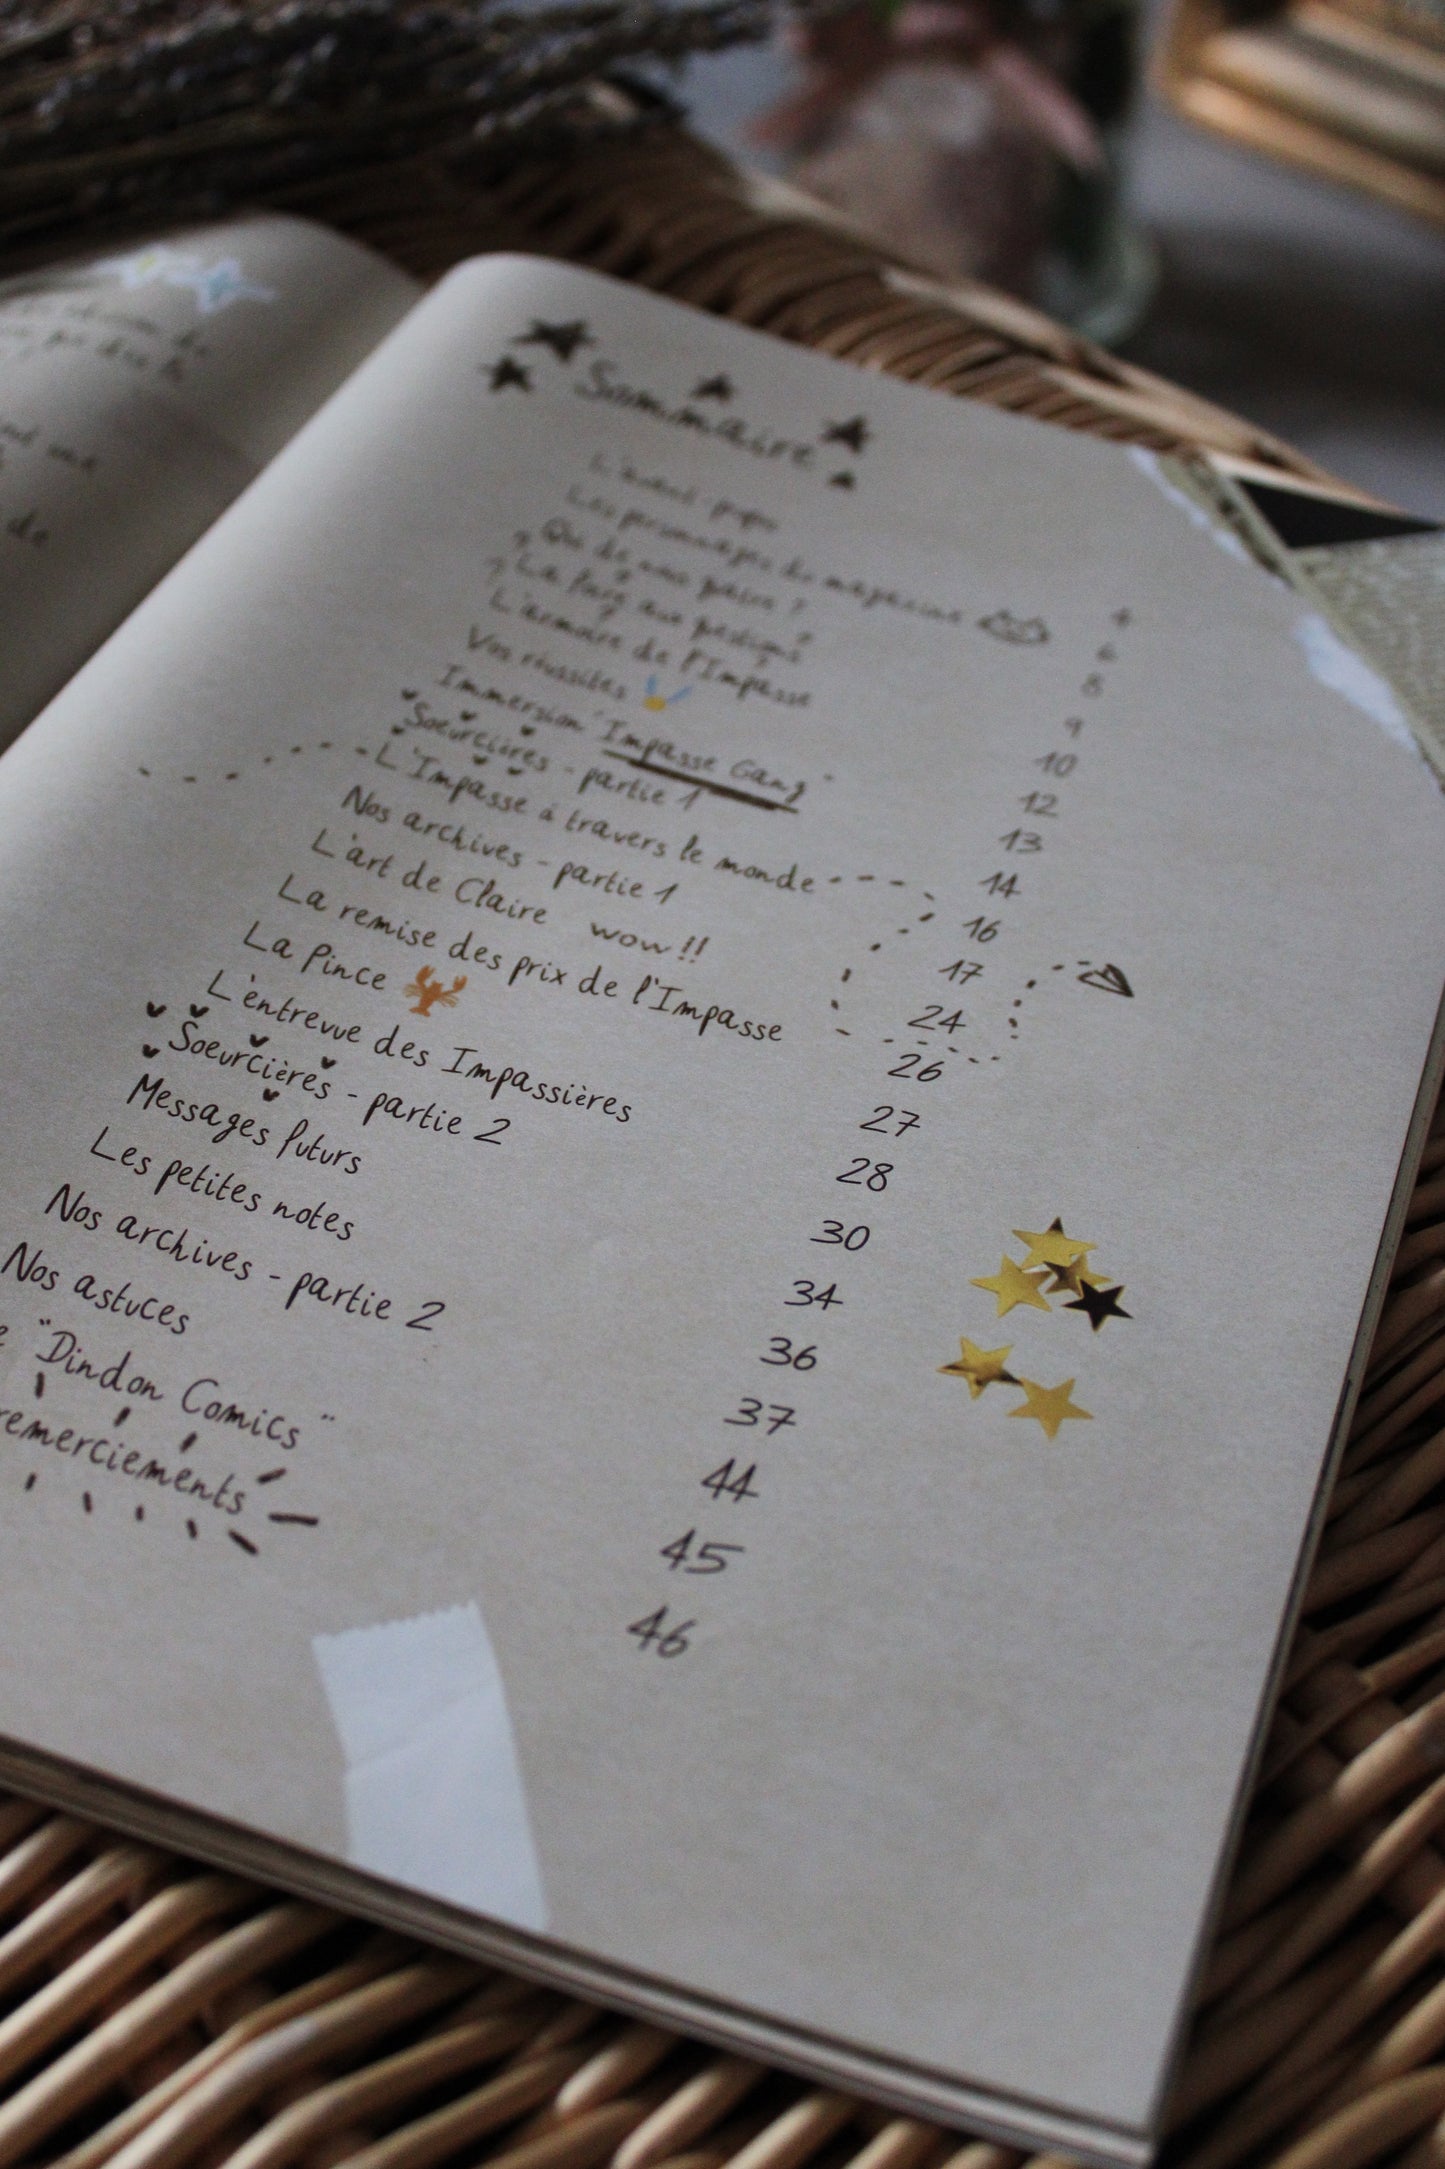 Sommaire
L'avant-propos 4
Les personnages du magazine 6
Qui de nous ? 8
La aux questions 9
L'armoire de l'Impasse 10
Vos réussites 12
Immersion "Impasse Gang" 13
Soeurcières - partie 1 14
L'Impasse à travers le monde 16
Nos archives - partie 1 17
L'art de Claire wow!! 24
La remise des prix de l'Impasse 26
La Pince 27
L'entrevue des Impassières 28
Soeurcières - partie 2 30
Messages futurs 34
Les petites notes 36
Nos archives - partie 2 37
Nos astuces 44
"Dindon Comics" 45
remerciements 46